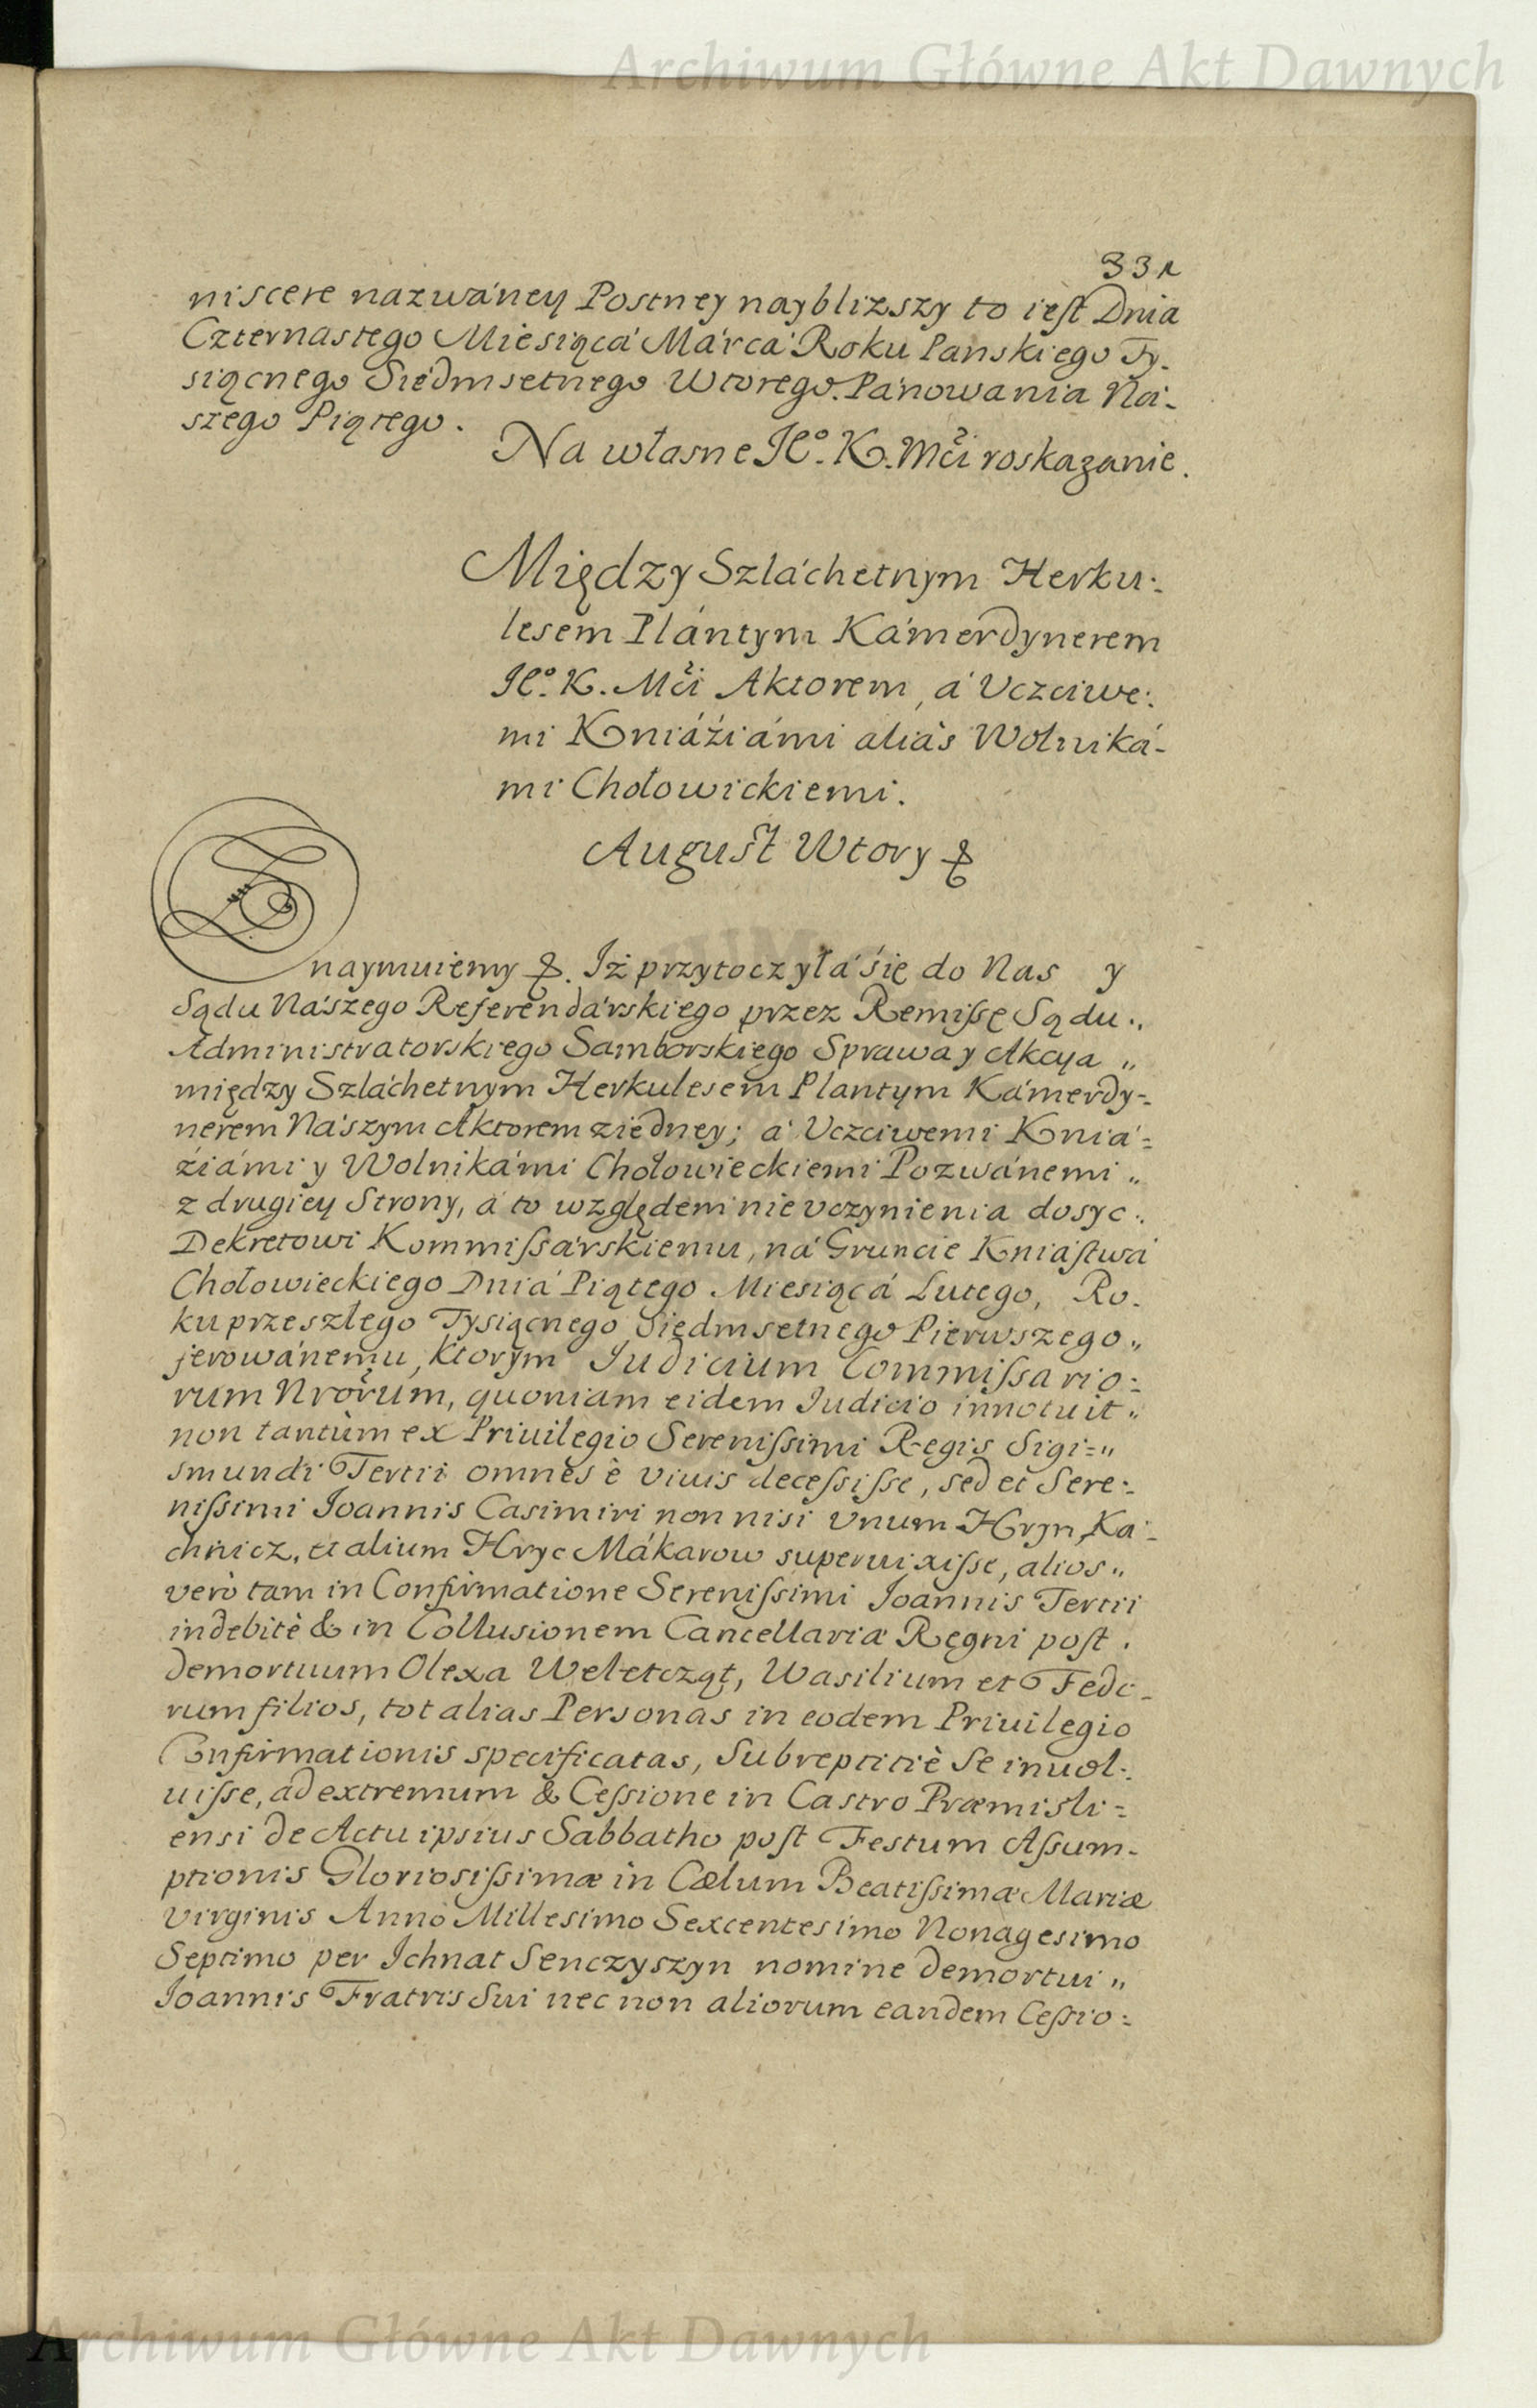 Archiwum Główne Akt Dawnych
331
niscere nazwáney Postney nayblizszy to iest Dnia
Czternastego Miesiącá Márcá Roku Panskiego Ty-
siącnego Siedmsetnego Wtorego. Pánowania Na-
szego Piątego.
Na własne Je°. K. Mći roskazanie.
Między Szláchetnym Herku-
lesem Plántym Kámerdynerem
Je°. K. Mći Aktorem, á Uczciwe-
mi Kniáźiámi aliàs Wolniká-
mi Chołowickiemi.
August Wtory &
Znaymuiemy &. Iż przytoczyłá się do Nas y
Sądu Nászego Referendárskiego przez Remissę Sądu
Administratorskiego Samborskiego Sprawa y Akcya
między Szláchetnym Herkulesem Plantym Kámerdy-
nerem Nászym Aktorem ziedney; á Uczciwemi Kniá-
źiámi y Wolnikámi Chołowieckiemi Pozwánemi
z drugiey Strony, á to względem nie vczynienia dosyc
Dekretowi Kommissárskiemu, ná Gruncie Kniastwá
Chołowieckiego Dniá Piątego Miesiącá Lutego, Ro-
ku przeszłego Tysiącnego Siedmsetnego Pierwszego
ferowánemu, ktorym Iudicium Commissario-
rum Nrorum, quoniam eidem Iudicio innotuit
non tantùm ex Priuilegio Serenissimi Regis Sigi-
smundi Tertii omnes è viuis decessisse, sed et Sere-
nissimi Ioannis Casimiri non nisi vnum Hryn, Ka-
chnicz, et alium Hryc Mákarow superuixisse, alios
verò tam in Confirmatione Serenissimi Joannis Tertii
indebitè & in Collusionem Cancellariæ Regni post
demortuum Olexa Weletcząt, Wasilium et Fedo-
rum filios, tot alias Personas in eodem Priuilegio
Confirmationis specificatas, Subreptitiè Se inuol-
uisse, ad extremum & Cessione in Castro Præmisli-
ensi de Actu ipsius Sabbatho post Festum Assum-
ptionis Gloriosissimæ in Cælum Beatissimæ Mariæ
Virginis Anno Millesimo Sexcentesimo Nonagesimo
Septimo per Ichnat Senczyszyn nomine demortui
Joannis Fratris Sui nec non aliorum eandem Cessio-
Archiwum Główne Akt Dawnych